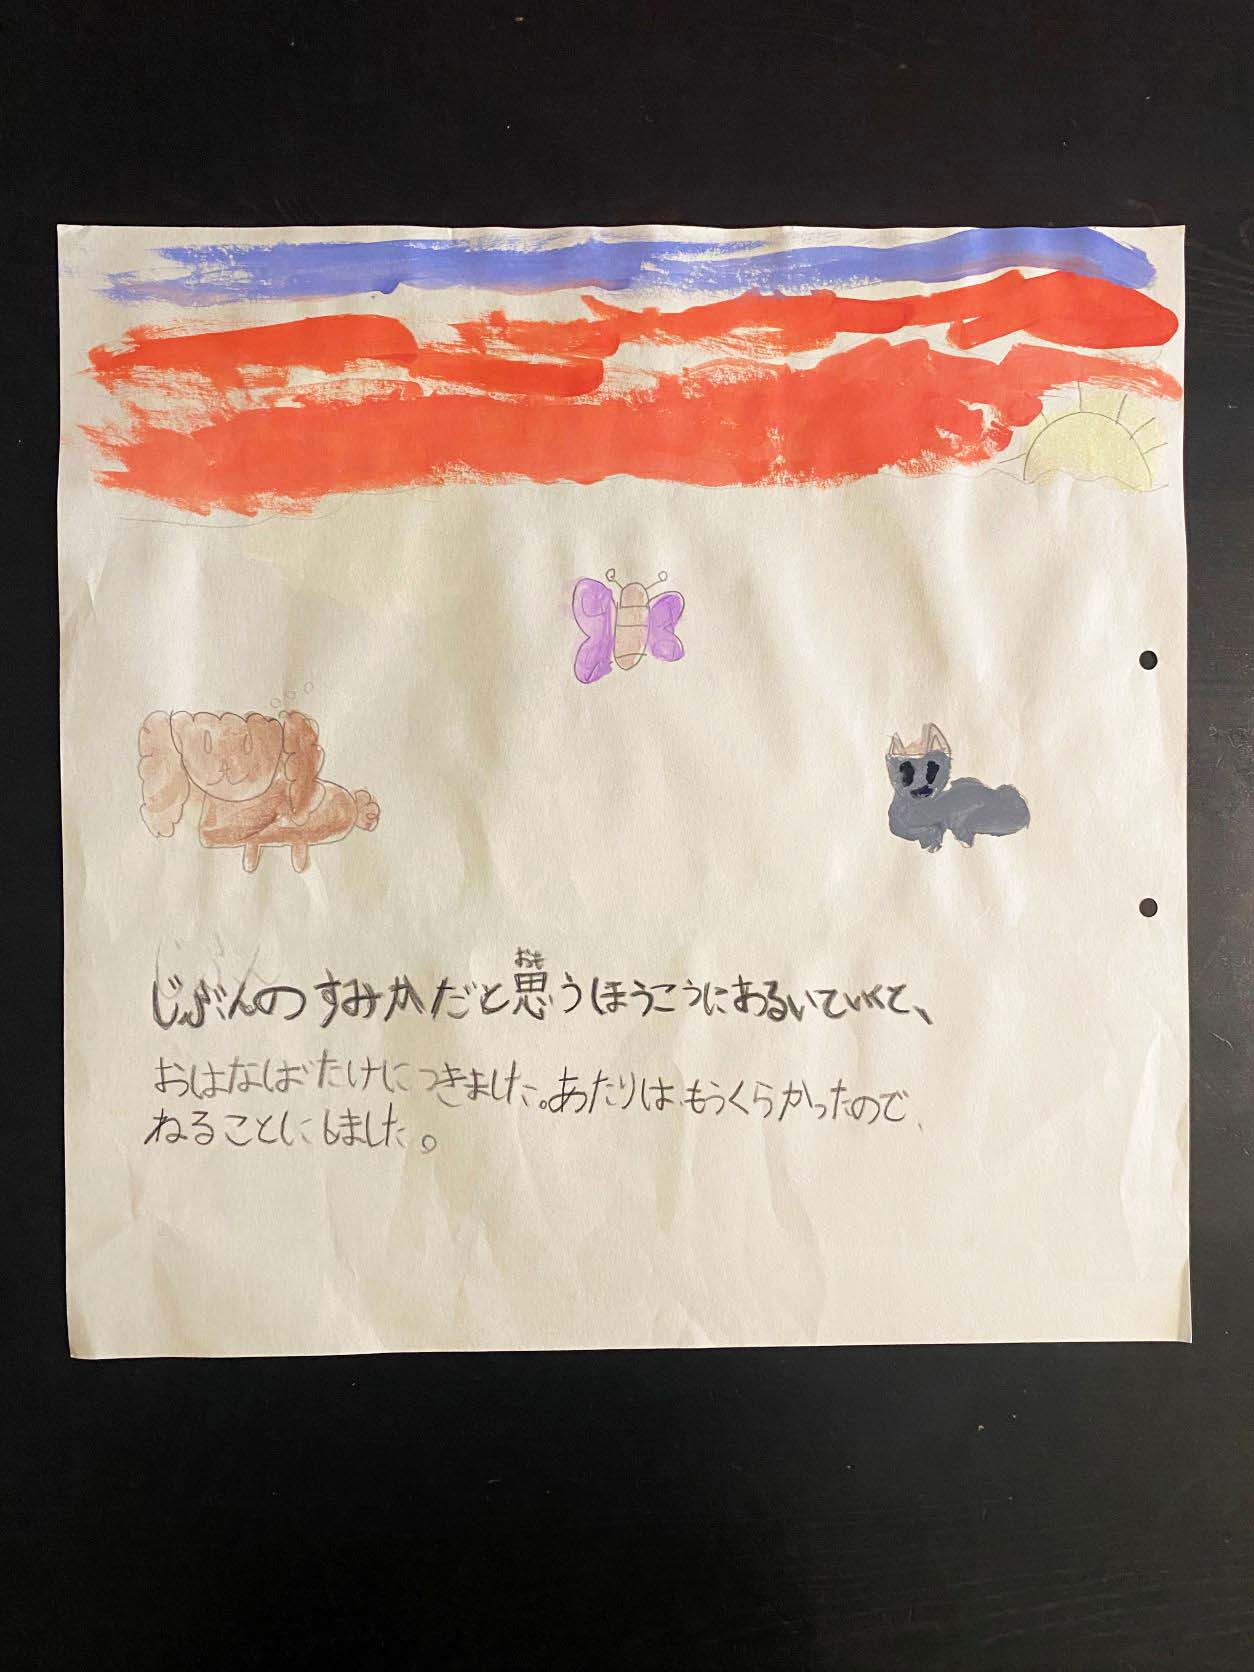 じぶんのすみかだと思うほうこうにあるいていくと、
おも
おはなばたけにつきました。あたりは、もうくらかったので、
ねることにしました。